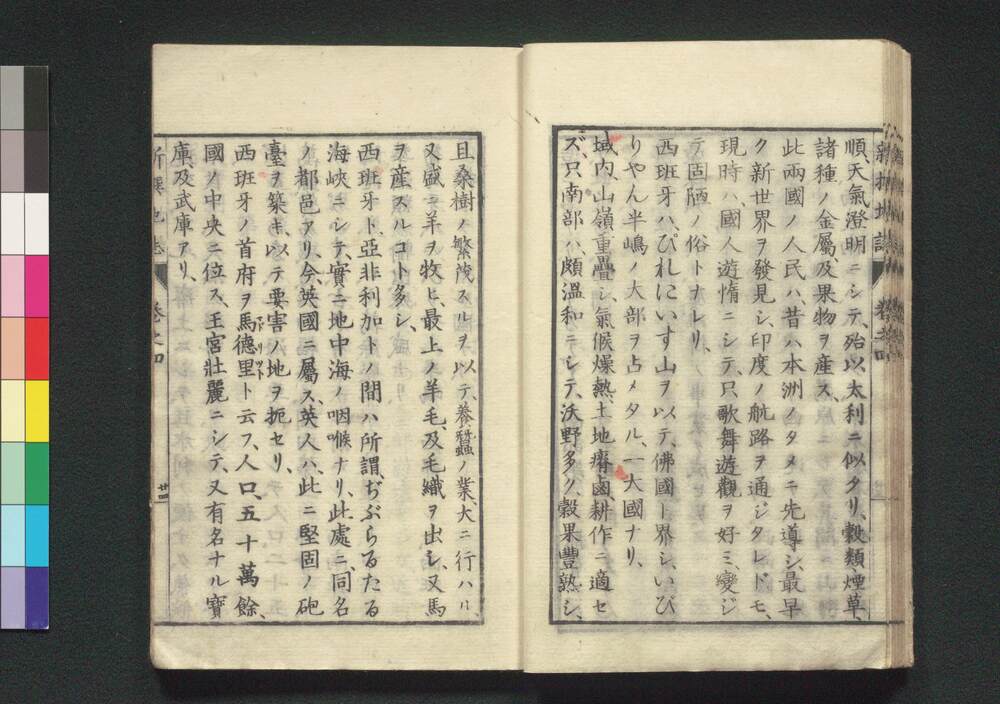 順、天氣澄明ニシテ、殆以太利ニ似タリ、穀類、煙草、
諸種ノ金屬及果物ヲ産ス、
此兩國ノ人民ハ、昔ハ本洲ノタメニ先導シ、最早
ク新世界ヲ發見シ、印度ノ航路ヲ通ジタレドモ、
現時ハ國人遊惰ニシテ、只歌舞遊觀ヲ好ミ、變ジ
テ固陋ノ俗トナレリ、
西班牙ハ、ぴれにいす山ヲ以テ、佛國ト界シ、いび
りやん半嶋ノ大部ヲ占メタル、一大國ナリ、
域内、山嶺重疊シ、氣候燥熱、土地瘠鹵、耕作ニ適セ
ズ、只南部ハ、頗溫和ニシテ、沃野多ク、穀果豐熟シ、
且桑樹ノ繁茂スルヲ以テ、養蠶ノ業、大ニ行ハル、
又盛ニ羊ヲ牧ヒ、最上ノ羊毛、及毛織ヲ出シ、又馬
ヲ産スルコト多シ、
西班牙ト、亞非利加トノ間ハ所謂、ぢぶらるたる
海峽ニシテ、實ニ地中海ノ咽喉ナリ、此處ニ、同名
ノ都邑アリ、今、英國ニ屬ス、英人ハ、此ニ堅固ノ砲
臺ヲ築キ、以テ要害ノ地ヲ扼セリ、
西班牙ノ首府ヲ馬德里ト云フ、人口、五十萬餘、
マドリット
國ノ中央ニ位ス、王宮壯麗ニシテ、又有名ナル寶
庫、及武庫アリ、
新撰地誌 卷之四 廿四